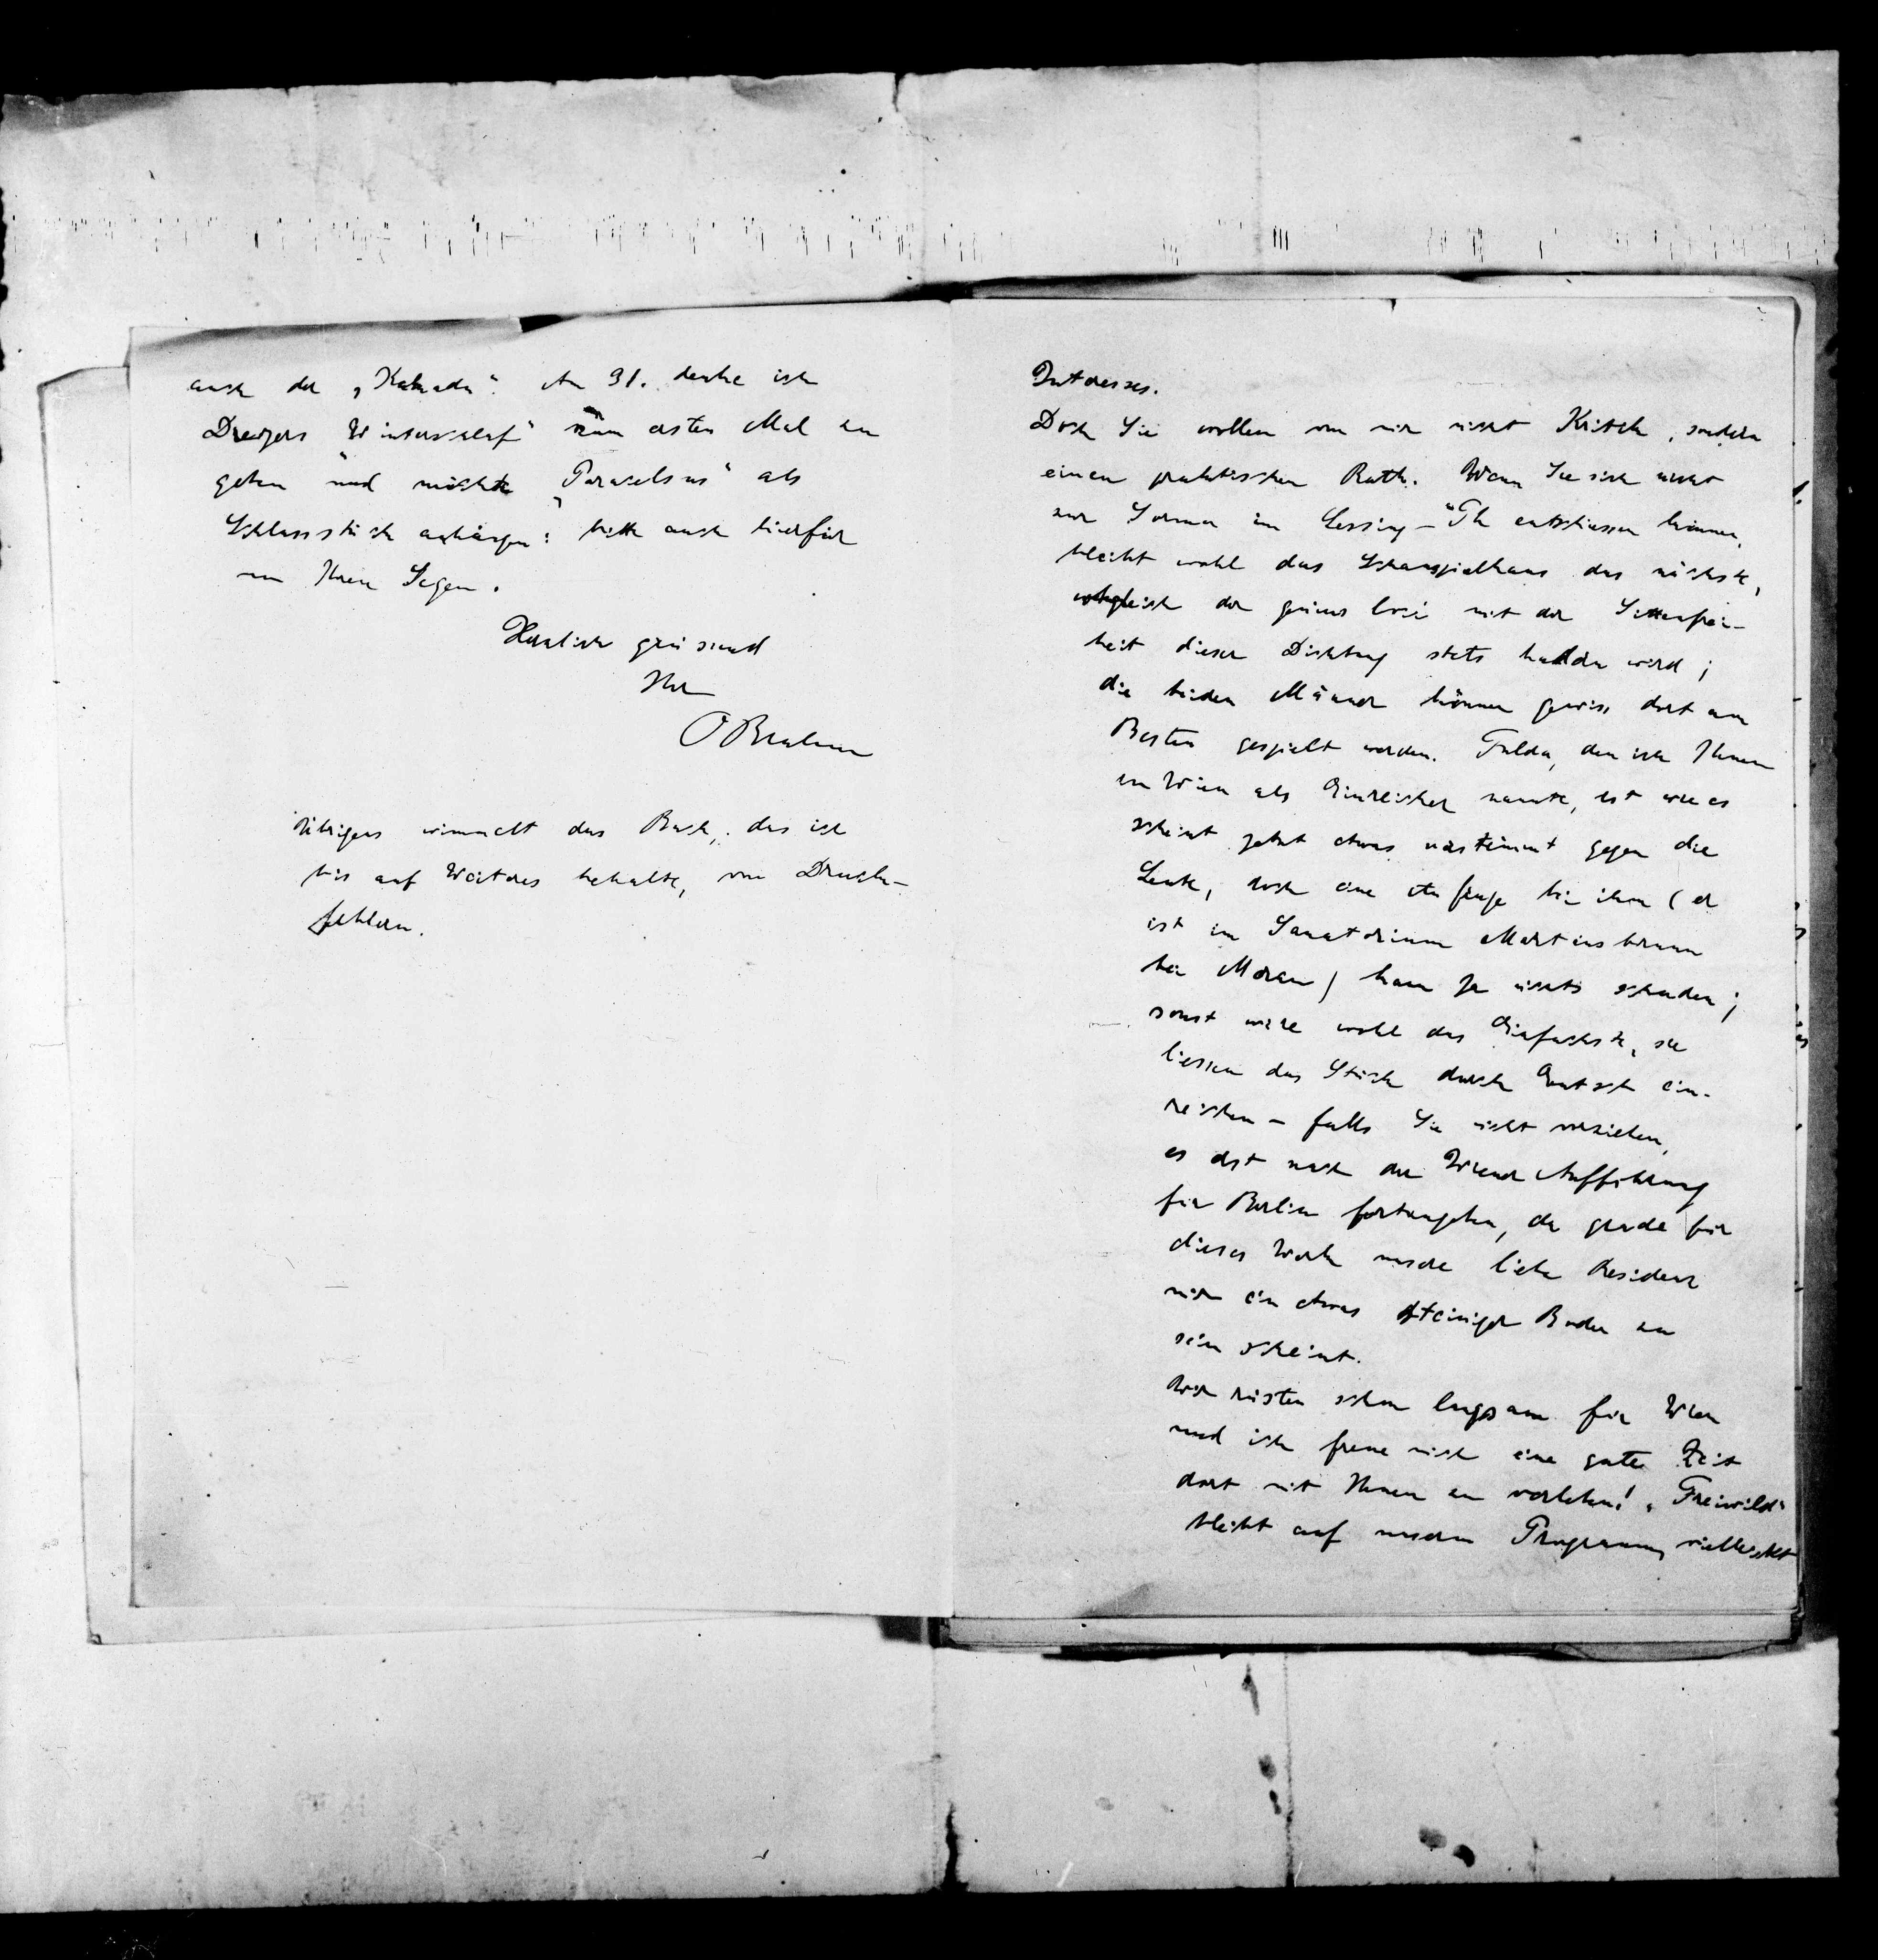 auch der „Kakadu“. Am 31. denke ich
Dreyers „Winterschlaf“ zum ersten Mal zu
geben und möchte „Paracelsus“ als
Schlussstück anhängen: bitte auch hierfür
um Ihren Segen.
Herzlich grüssend
Ihr
OBrahm
Übrigens wimmelt das Buch, das ich
bis auf Weiteres behalte, von Druck-
fehlern.
Interesses.
Doch Sie wollen von mir nicht Kritik, sondern
einen praktischen Rath. Wenn Sie sich nicht
zur Sorma im Lessing-Th entschliessen können,
bleibt wohl das Schauspielhaus das nächste,
obgleich der genius loci mit der Sittenfrei-
heit dieser Dichtung stets hadern wird;
die beiden Männer können gewiss dort am
Besten gespielt werden. Fulda, den ich Ihnen
in Wien als Einreicher nannte, ist wie es
scheint jetzt etwas verstimmt gegen die
Leute, doch eine Anfrage bei ihm (er
ist im Sanatorium Martinsbrunn
bei Meran) kann ja nichts schaden;
sonst wäre wohl das Einfachste, sie
liessen das Stück durch Entsch ein-
reichen – falls Sie nicht vorziehen,
es erst nach der Wiener Aufführung
für Berlin fortzugeben, da gerade für
dieses Werk unsere liebe Residenz
mir ein etwas steiniger Boden zu
sein scheint.
Wir rüsten schon langsam für Wien
und ich freue mich eine gute Zeit
dort mit Ihnen zu verleben! „Freiwild“
bleibt auf unserm Programm, vielleicht